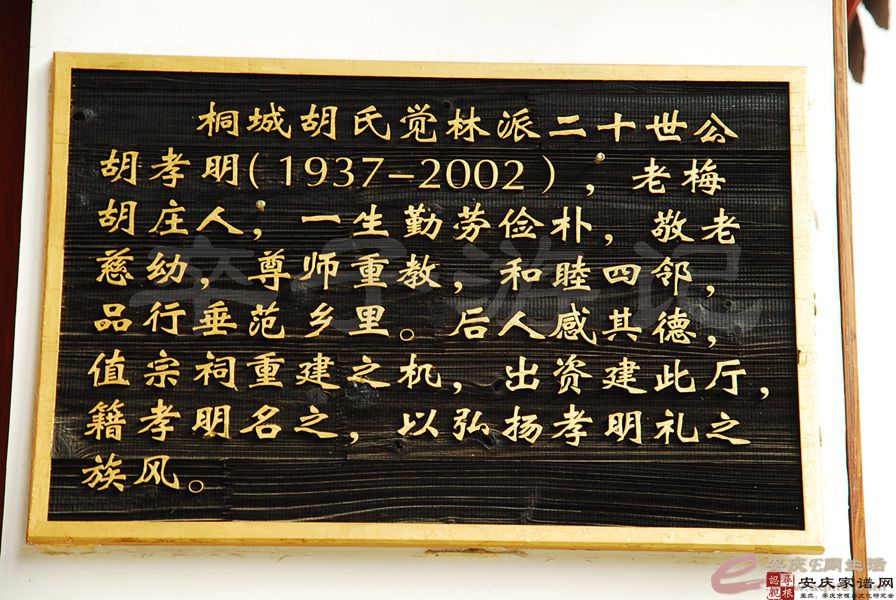 桐城胡氏觉林派二十世公
胡孝明（1937-2002），老梅
胡庄人，一生勤劳俭朴，敬老
慈幼，尊师重教，和睦四邻，
品行垂范乡里。后人感其德，
值宗祠重建之机，出资建此厅，
籍孝明名之，以弘扬孝明礼之
族风。
安庆E网生活
寻根
认亲
安庆家谱网